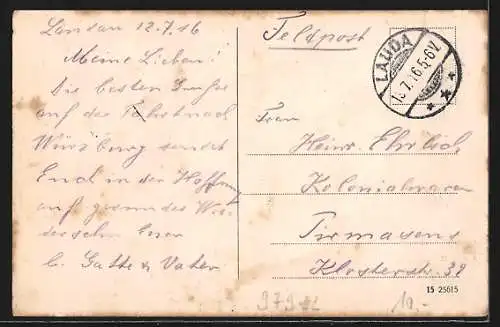 Landau 12.7.16
Meine Lieben!
Die besten Grüße
auf der Fahrt nach
Würzburg sendet
Euch in der Hoffnung
auf gesundes Wie-
dersehn Euer
l. Gatte & Vater
Feldpost
LAUDA
13.7.16.5-6V.
Frau
Heinr. Ehrlich
Kolonialwaren
Pirmasens
Klosterstr. 32
15 25615
10.-